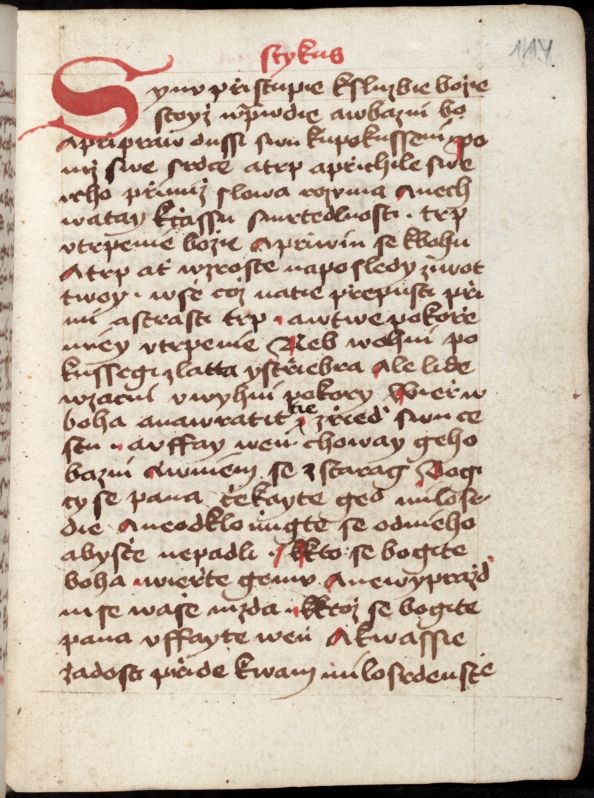 114
stykus
Synv přistupie kslużbie bożie
stoyż wprwdie awbazni bo
Apripraw dussi swu kupokusseni po
niż swe srdce atrp aprichile swe
vcho priimiż slowa rozvma Anech
watay kċassu smrtedlnosti · trp
vtrpenie bożie Apriwin se kbohu
Atrp at wzroste naposledy żiwot
twoy · wse coż natie přepusti přii
mi astrasti trp · awtwe pokoře
miey vtrpenie Neb wohni po
kussegi zlatta ystřiebra Ale lide
wzacni vwyhni pokory Wieř w
boha anawratit tie zřied swu ce
stu · avffay weň choway geho
bazni Awniem se zstarag Bogi
cy se pana čekayte geo milosr
die Aneodkloniugte se odnieho
abyste nepadli · kto se bogite
boha wieřte gemv Anewyprazd
ni se wase mzda · ktoż se bogite
pana vffayte weň Akwassie
żadosti přide kwam milosrdenstẇie